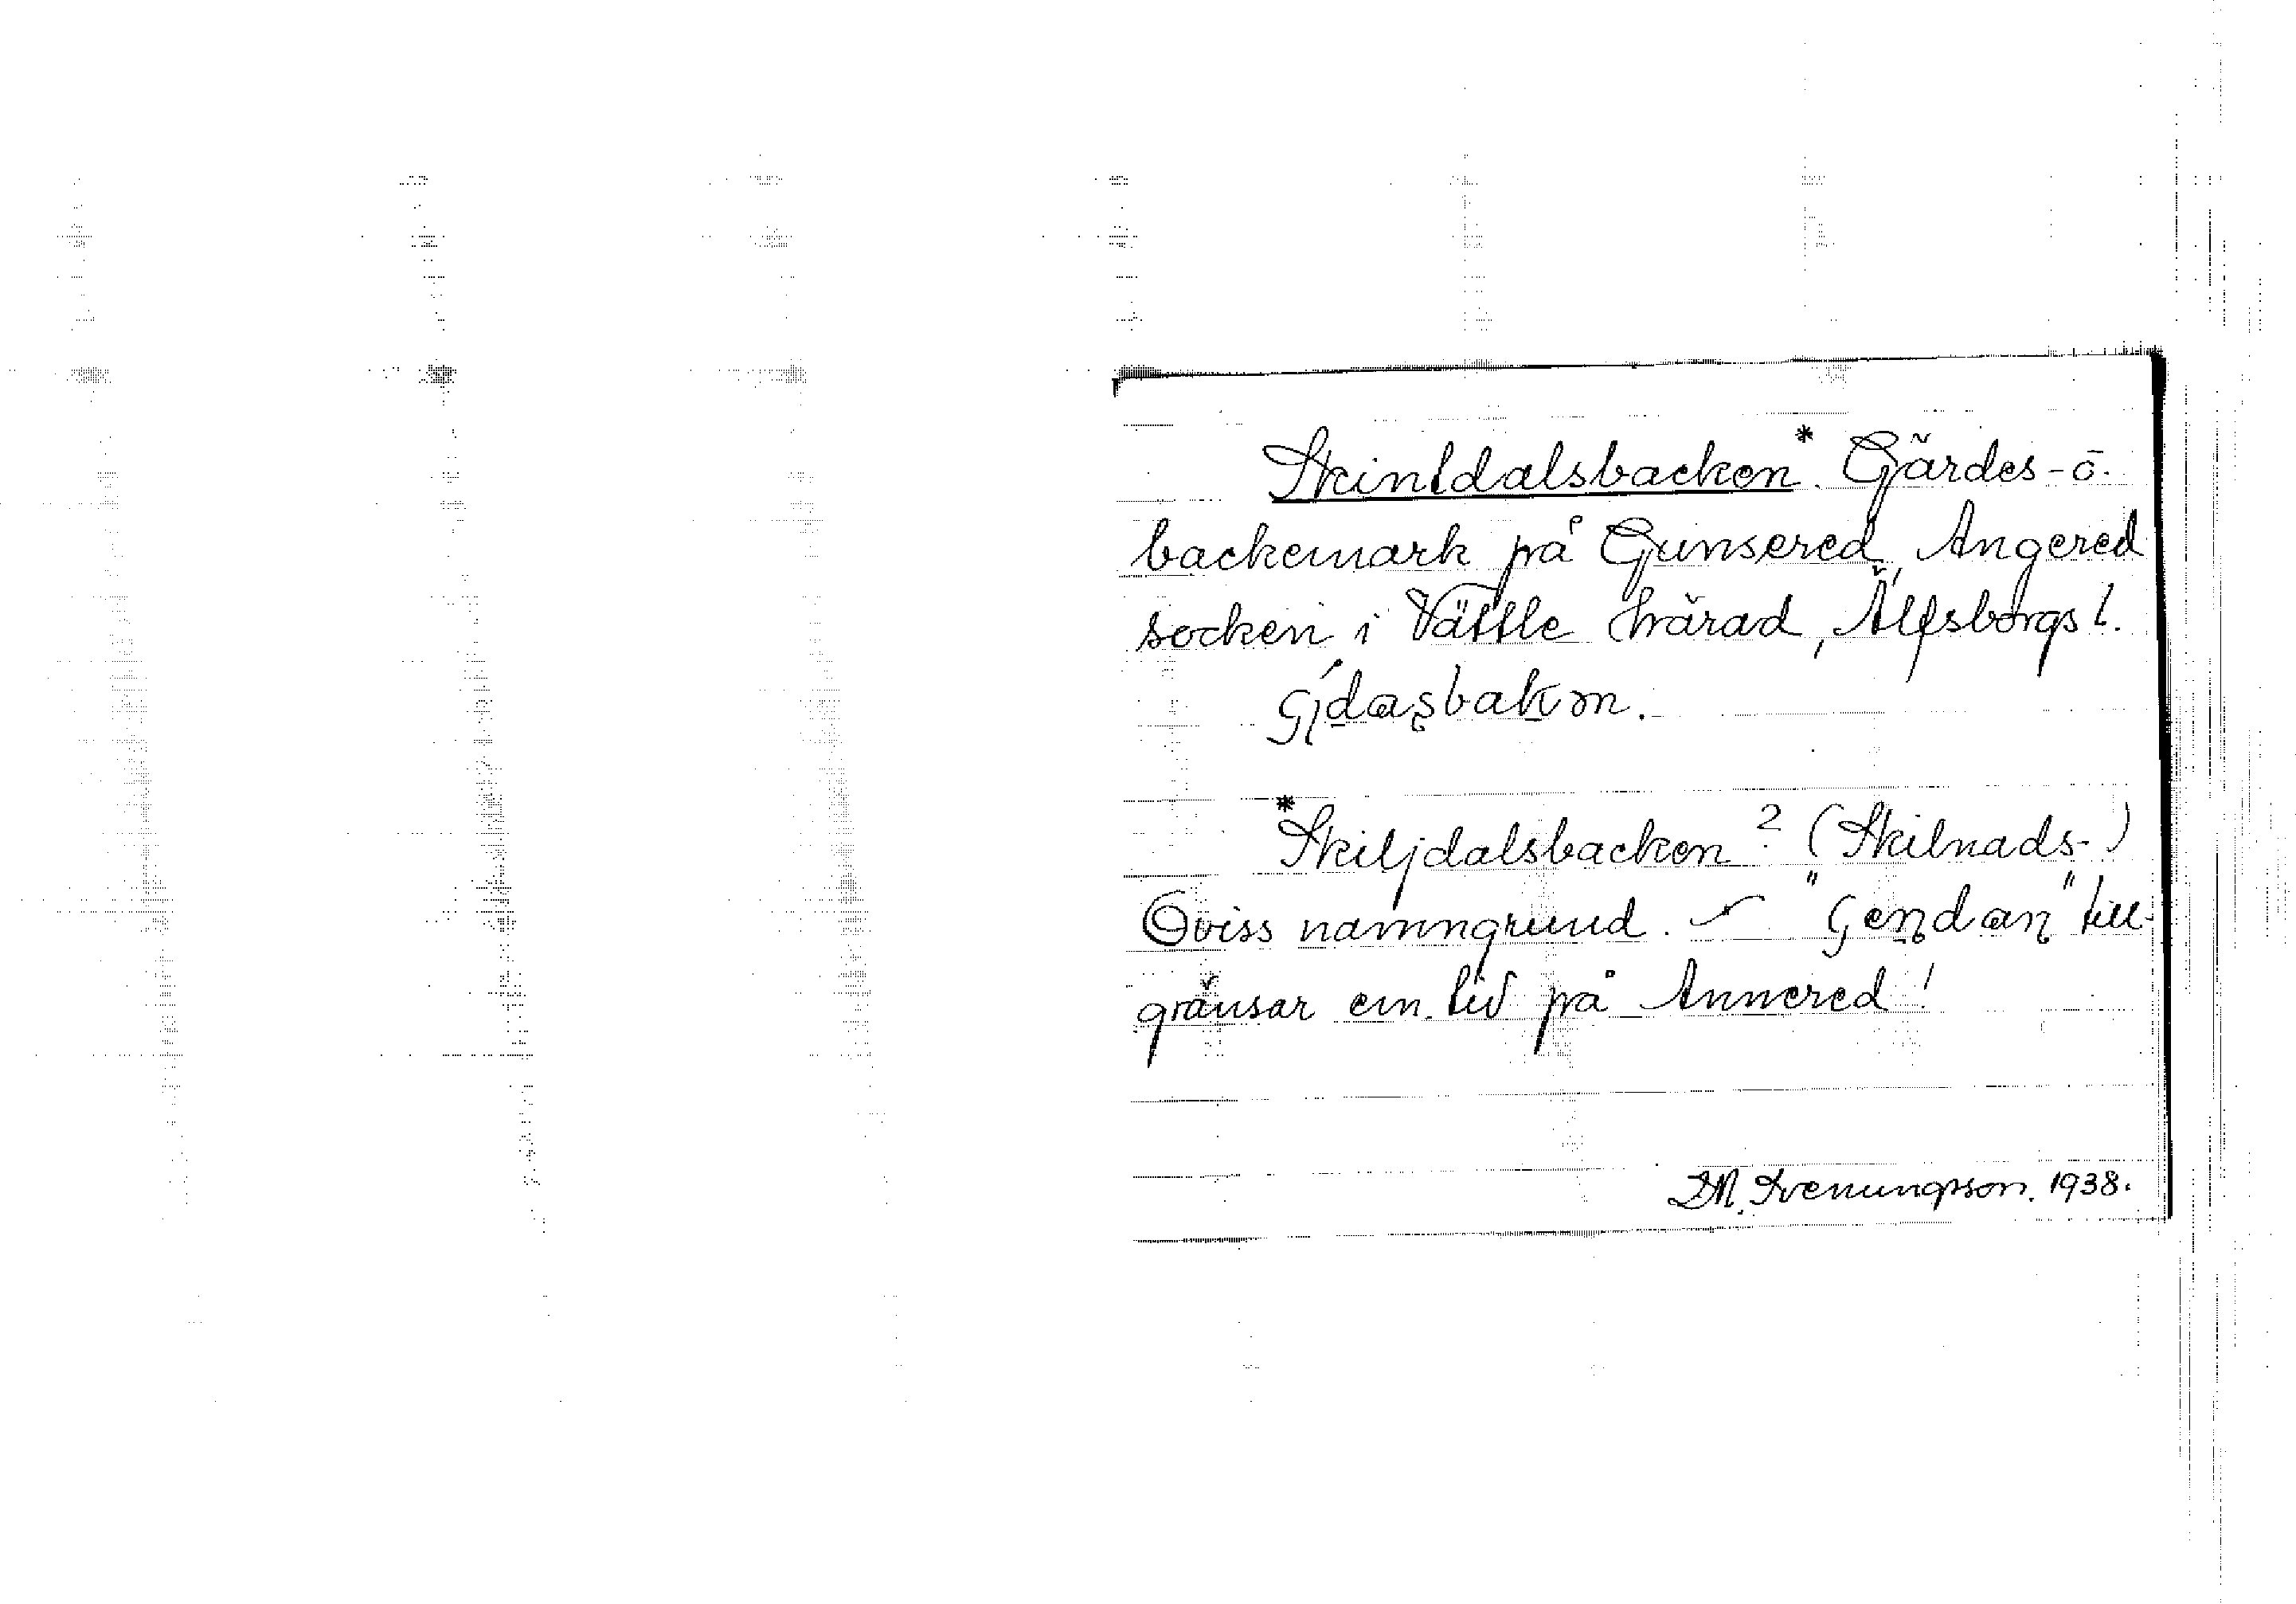 Skinldalsbacken*. Gärdes- o.
backemark på Gunsered, Angered
socken i Vättle härad, Älfsborgs l.
*Skiljdalsbacken? (Skilnads-)
Oviss namngrund. - "Gendan" till-
gränsar em. tid på Annered!
D.M. Svenungsson. 1938.